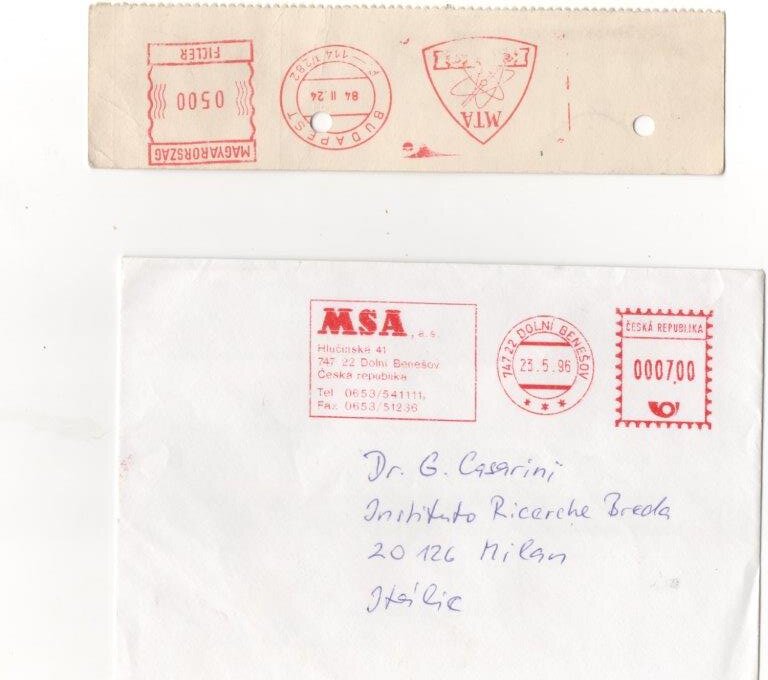 MAGYARORSZÁG
0500
FILLÉR
BUDAPEST
84 II. 24
MTA
MSA, a.s.
Hlučínská 41
747 22 Dolní Benešov
Česká republika
Tel 0653/541111,
Fax 0653/51236
747 22 DOLNÍ BENEŠOV
23.5.96
ČESKÁ REPUBLIKA
0007,00
Dr. G. Casarini
Instituto Ricerche Breda
20126 Milan
Itálie